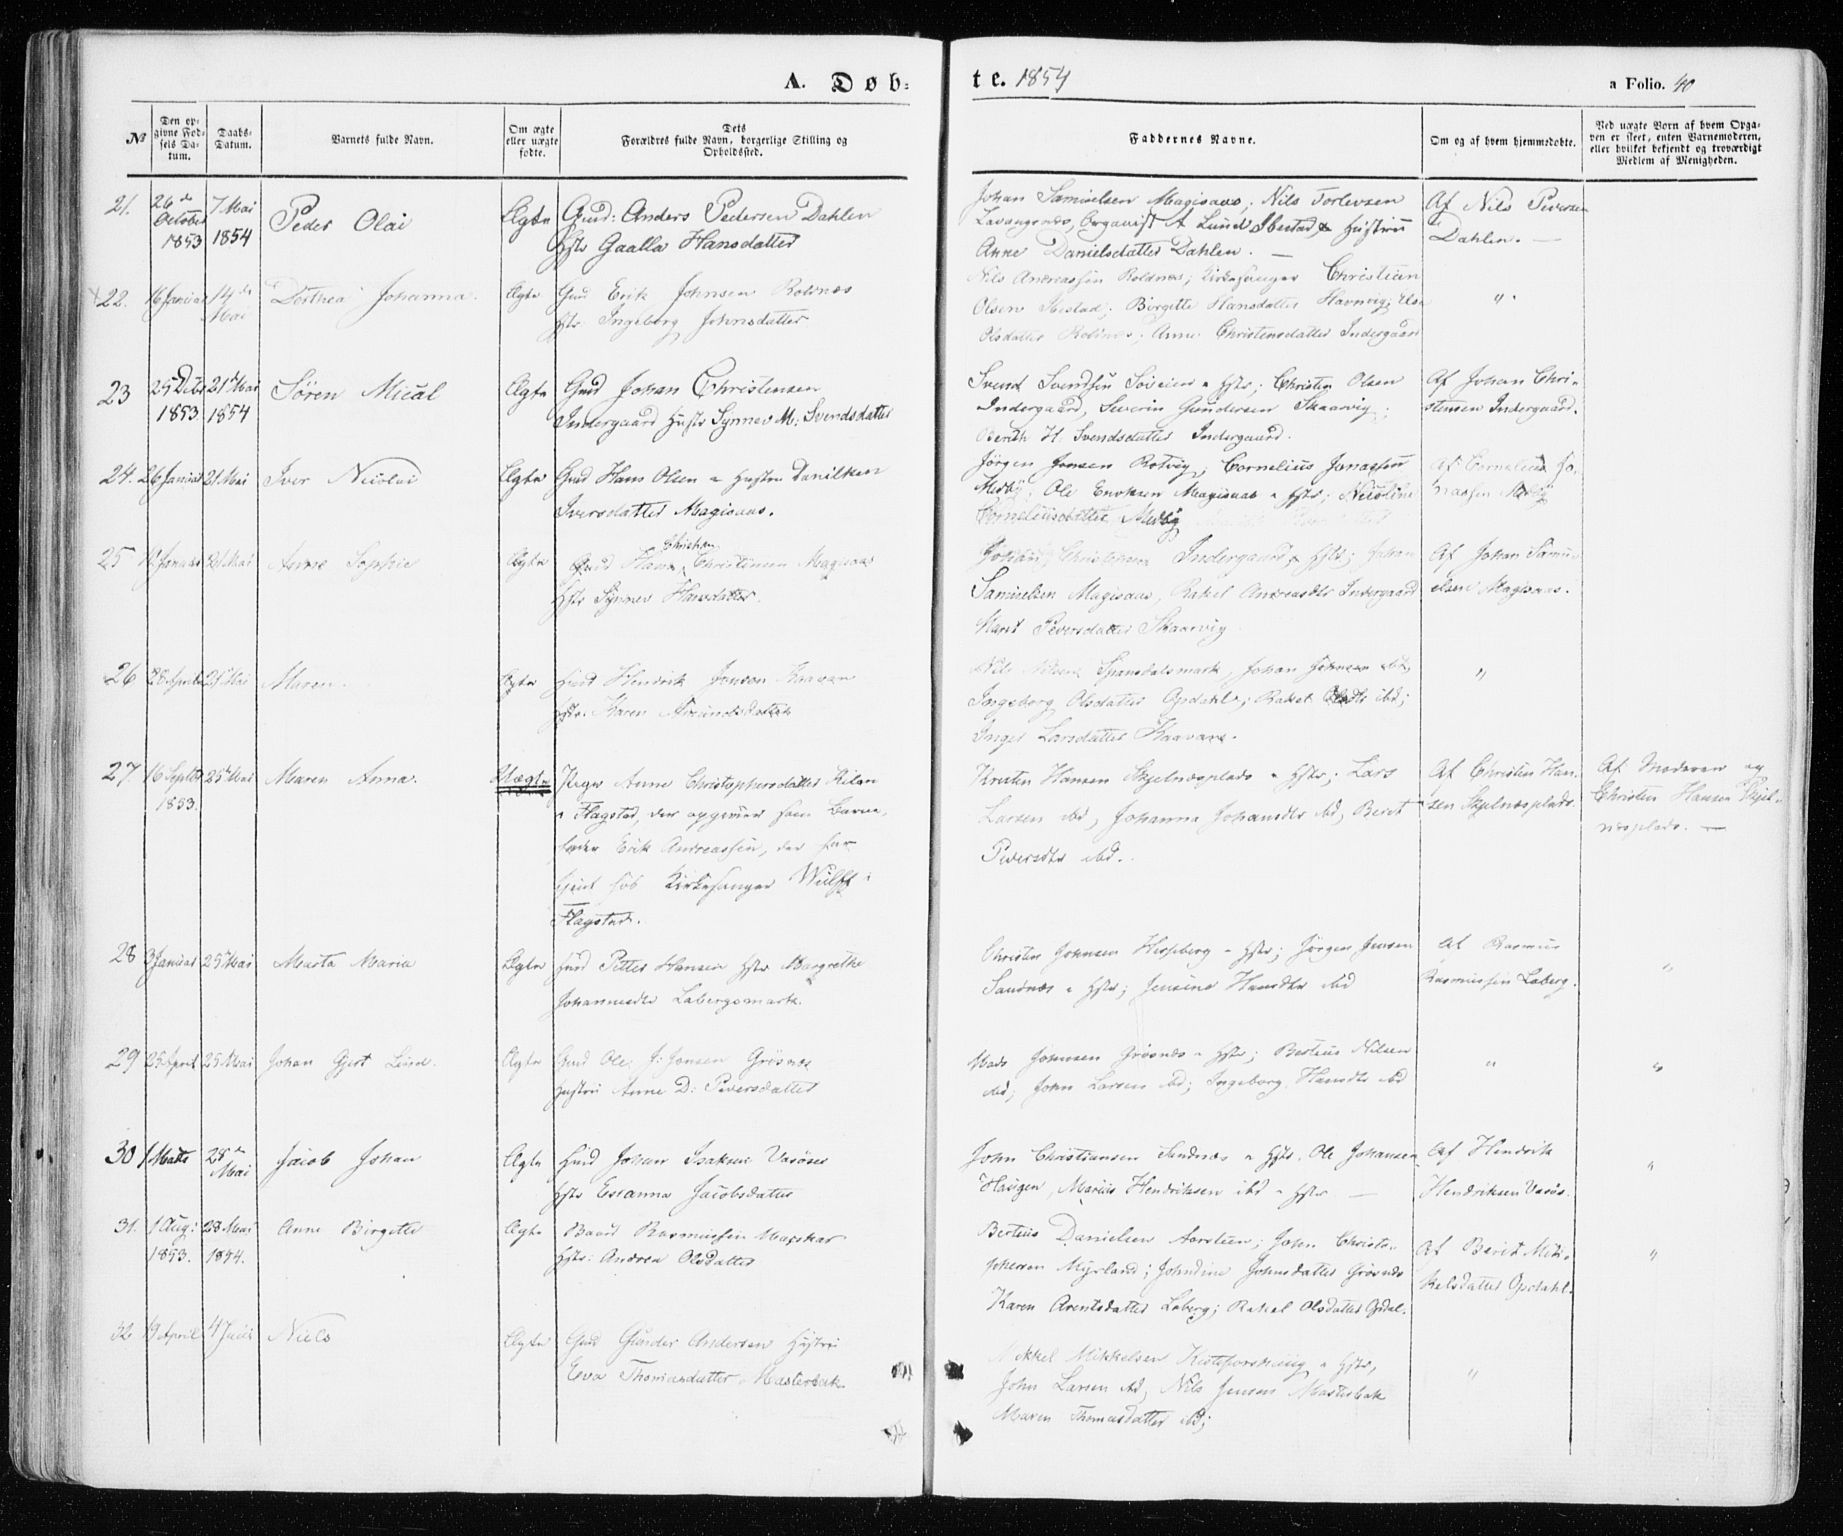 A. Døb-
te. 1854
a Folio. 40
№
Den op-
givne Fød-
sels Da-
tum.
Daabs-
Datum.
Barnets fulde Navn.
Om ægte
eller uægte
fødte.
Dets
Forældres fulde Navn, borgerlige Stilling og
Opholdssted.
Faddernes Navne.
Om og af hvem hjemmedøbte.
Ved uægte Børn af hvem Opga-
ven er skeet, enten Barnemoderen,
eller hvilket bekjendt og troværdigt
Medlem af Menigheden.
21. 26de October 1853 7 Mai 1854 Peder Olai Ægte Gmd: Anders Pedersen Dahlen
Hstr Gaalla Hansdatter
Johan Samuelsen Magisaas; Nils Torlevsen
Lavangsnæs, Organist A Lund Ibestad & Hustrue
Anne Danielsdatter Dahlen. —
Af Nils Peversen
Dahlen. —
22. 16 Januar 14de Mai Dorthea Johanna. Ægte Gmd Erik Johnsen Rolnæs
Hstr Ingeborg Johnsdatter
Nils Andreassen Roldnæs; Kirkesanger Christian
Olsen Ibestad; Birgitte Hansdatter Havnvig; Else
Olsdatter Rolnæs; Anne Christensdatter Indergaard
"
23 25 Dcbr 1853 21 Mai 1854 Sören Mical Ægte Gmd Johan Christensen
Indergaard Hustr Synnev M: Svendsdatter
Svend Svendsen Søveien & Hstr; Christen Olsen
Indergaard, Severin Gundersen Skaarvig;
Berith H. Svendsdatter Indergaard.
Af Johan Chri-
stensen Indergaard.
24. 26 Januar 21 Mai Iver Nicolai Ægte Gmd Hans Olsen & Hustru Danilken
Iversdatter Magisaas.
Jørgen Jensen Rotvig; Cornelius Jonassen
Medby; Ole Enoksen Magisaas & Hstr; Nicoline
Corneliusdatter Medby
Af Cornelius Jo-
nassen Medby
25 Januar 21 Mai Anne Sophie Ægte Gmd Hans Christian Christensen Magisaas
Hstr Synnev Hansdatter.
Johan Christensen Indergaard & Hstr; Johan
Samuelsen Magisaas, Rakel Andreasdtr Indergaard
Marit Peversdatter Skaarvig.
Af Johan Samu-
elsen Magisaas.
26 28 April 25 Mai Maren. Ægte Hmd Hendrik Jonson Kaavan
Hstr. Karen Amundsdatter
Nils Nilsen Spansdalsmark, Johan Johnsen ibd,
Ingeborg Olsdatter Opdahl; Rakel Olsdtr ibd;
Inger Larsdatter Kaavan.
"
27 16 Septbr 1853. 25 Mai Maren Anna. Uægte Pige Anne Christophersdatter Kilen
i Flagstad, der opgiver som Barne-
fader Erik Andreassen, der har
tjent hos Kirkesanger Wulff i
Flagstad.
Kristen Hansen Skjelnæsplads & Hstr; Lars
Larsen ibd, Johanna Johansdtr ibd, Berit
Peversdtr ibd.
Af Christen Han-
sen Skjelnæsplads.
Af Moderen og
Christen Hansen Skjel-
næsplads. —
28 3 Januar 25 Mai Marta Maria Ægte Hmd Petter Hansen Hstr Margrethe
Johannesdtr Labergsmark.
Christen Johnsen Hesjeberg & Hstr; Jörgen Jensen
Sandnæs & Hstr; Jensine Hansdtr ibd
Af Rasmus
Rasmussen Laberg.
"
29 25 April 25 Mai Johan Gjert Lund. Ægte Gmd Ole J: Jensen Grösnæs
Hustru Anne D: Peversdatter
Mads Johnsen Grösnæs & Hstr; Berteus Nilsen
ibd; John Larsen ibd; Ingeborg Hansdtr ibd
"
"
30 1 Marts 28de Mai Jacob Johan Ægte Hmd Johan Isaksen Vasöses
Hstr Esianna Jacobsdatter
John Christiansen Sandnæs & Hstr. Ole Johansen
Haugen, Marius Hendriksen ibd & Hstr —
Af Hendrik
Hendriksen Vasös.
"
31. 1 Aug: 1853. 28 Mai 1854. Anne Birgitte Ægte Baard Rasmussen
Hstr: Andrea Olsdatter
Berteus Danielsen Aarsteen; John Christo-
phersen Myrland; Johndine Johnsdatter Grösnæs
Karen Arentsdatter Laberg; Rakel Olsdatter Opdal.
Af Berit Mik-
kelsdatter Opdahl.
"
32 19 April 4 Juni Niels Ægte Gmd Gunder Andersen Hustru
Eva Thomasdatter Masterbak
Mikkel Mikkelsen & Hstr,
John Larsen ibd, Nils Jensen Masterbak
Maren Thomasdatter ibd;
"